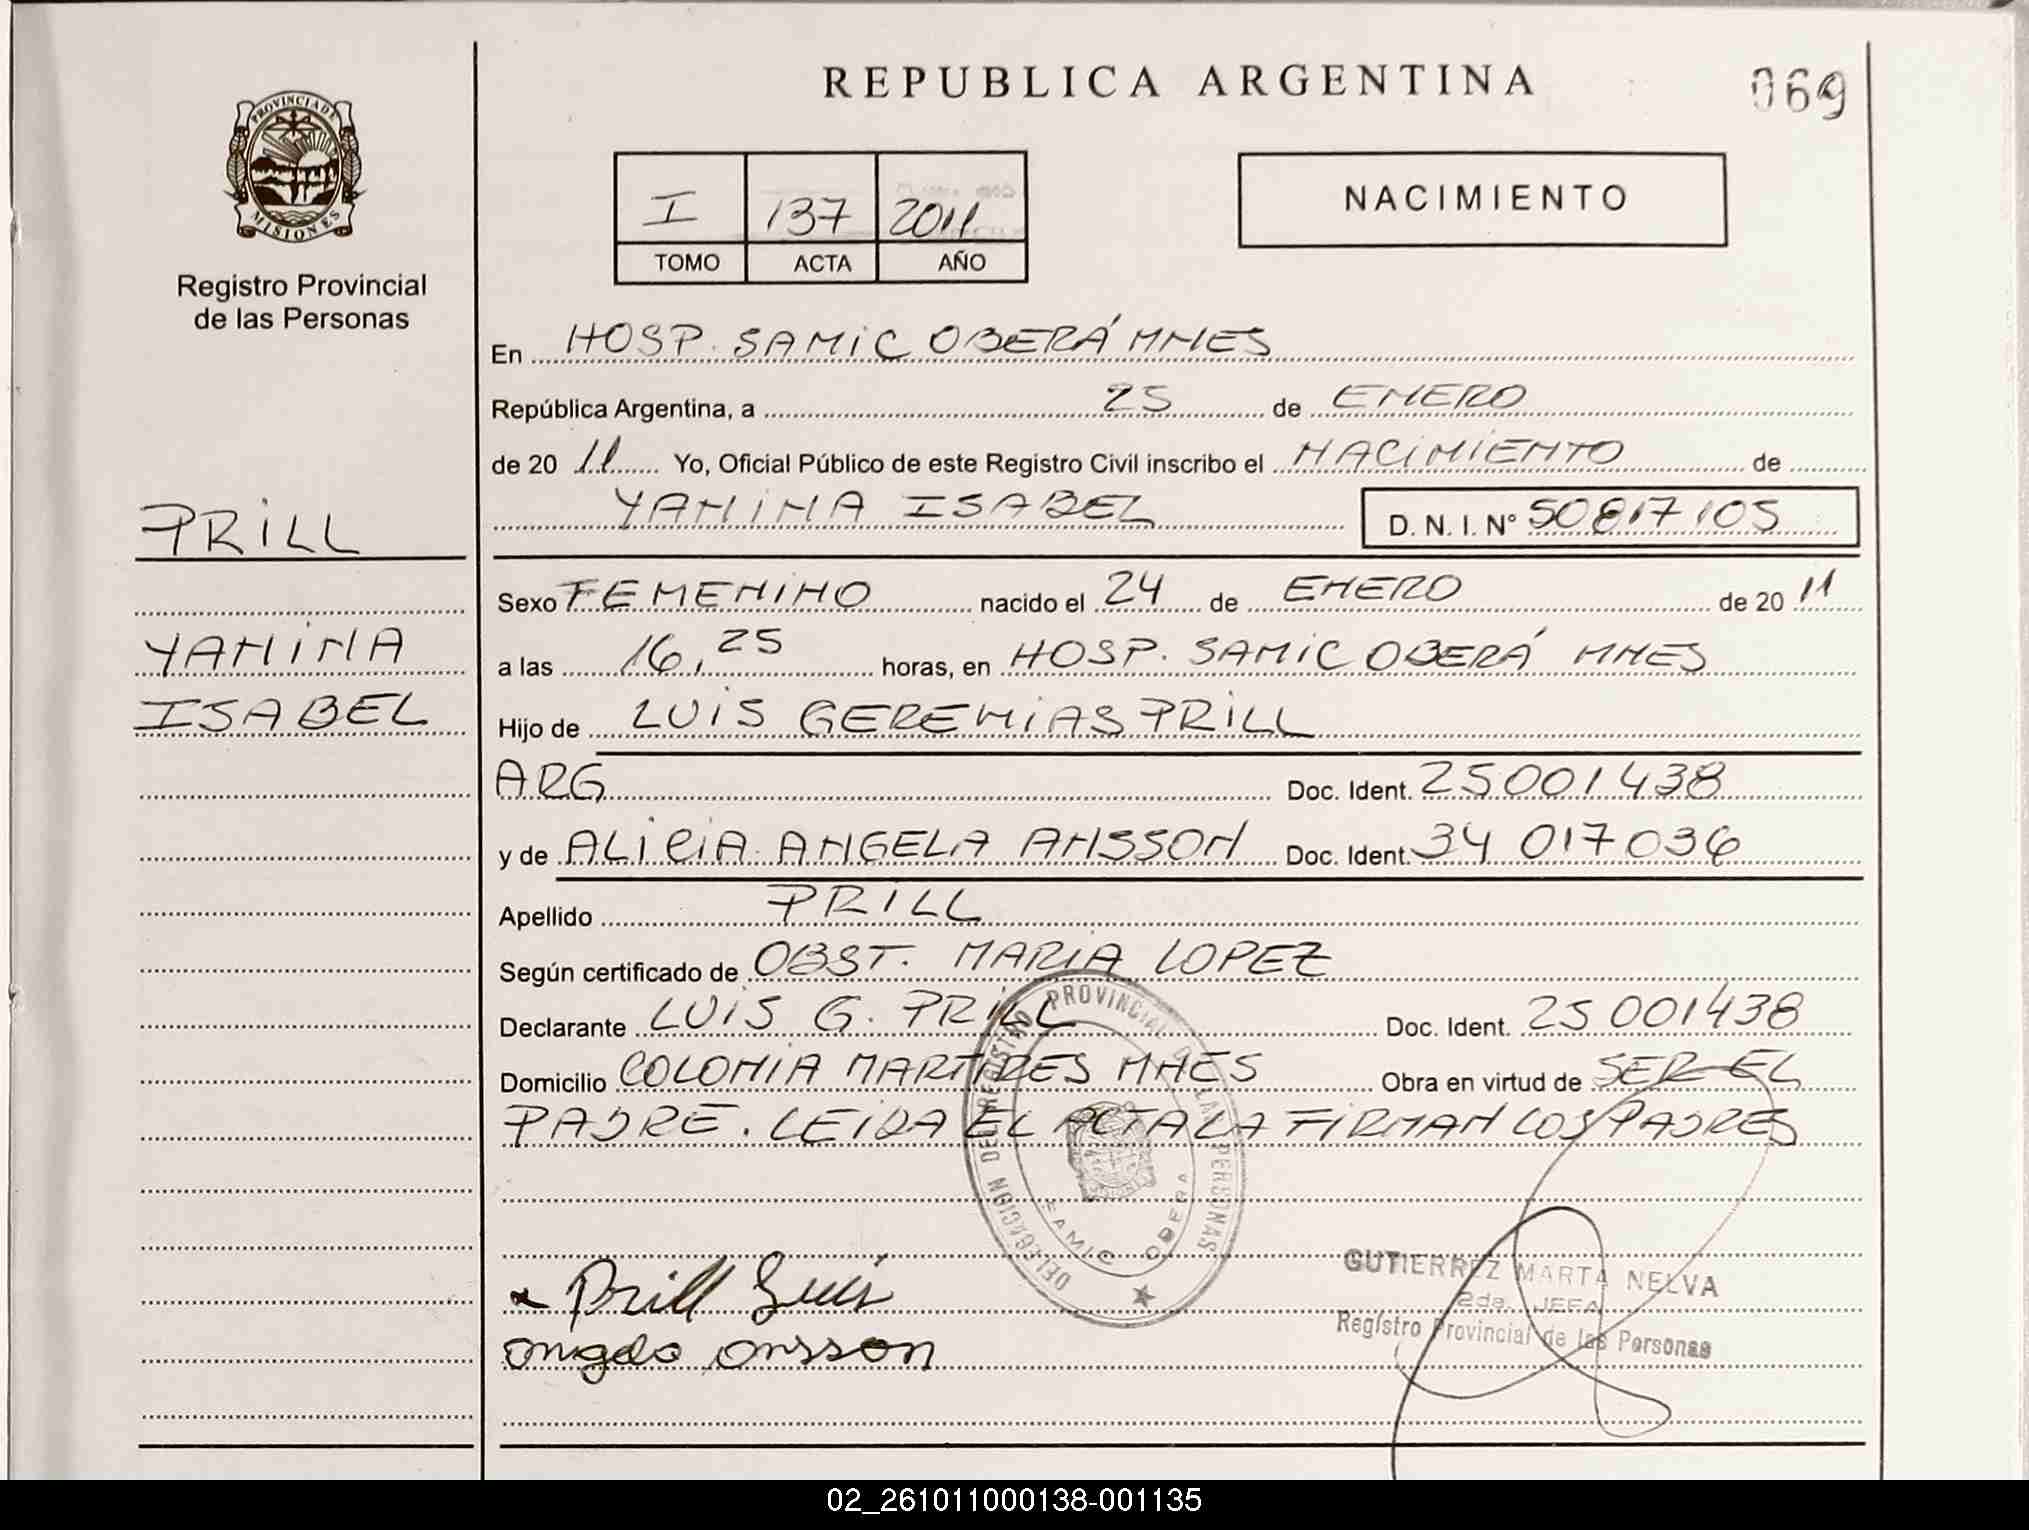 REPUBLICA ARGENTINA
069
PROVINCIA DE
MISIONES
Registro Provincial
de las Personas
I 137 2011
TOMO ACTA AÑO
NACIMIENTO
En HOSP. SAMIC OBERÁ MNES
República Argentina, a 25 de ENERO
de 20 11 Yo, Oficial Público de este Registro Civil inscribo el NACIMIENTO de
YANINA ISABEL D. N. I. N° 50817105
PRILL
YANINA
ISABEL
Sexo FEMENINO nacido el 24 de ENERO de 20 11
a las 16,25 horas, en HOSP. SAMIC OBERÁ MNES
Hijo de LUIS GEREMIAS PRILL
ARG Doc. Ident. 25001438
y de ALICIA ANGELA ANSSON Doc. Ident. 34 017036
Apellido PRILL
Según certificado de OBST. MARIA LOPEZ
Declarante LUIS G. PRILL Doc. Ident. 25 001438
Domicilio COLONIA MARTIRES MNES Obra en virtud de SER EL
PADRE. LEIDA EL ACTA LA FIRMAN LOS PADRES
DELEGACION DEL REGISTRO PROVINCIAL DE LAS PERSONAS
SAMIC OBERA
Prill Luis
angela ansson
GUTIERREZ MARTA NELVA
2da. JEFA
Registro Provincial de las Personas
02_261011000138-001135